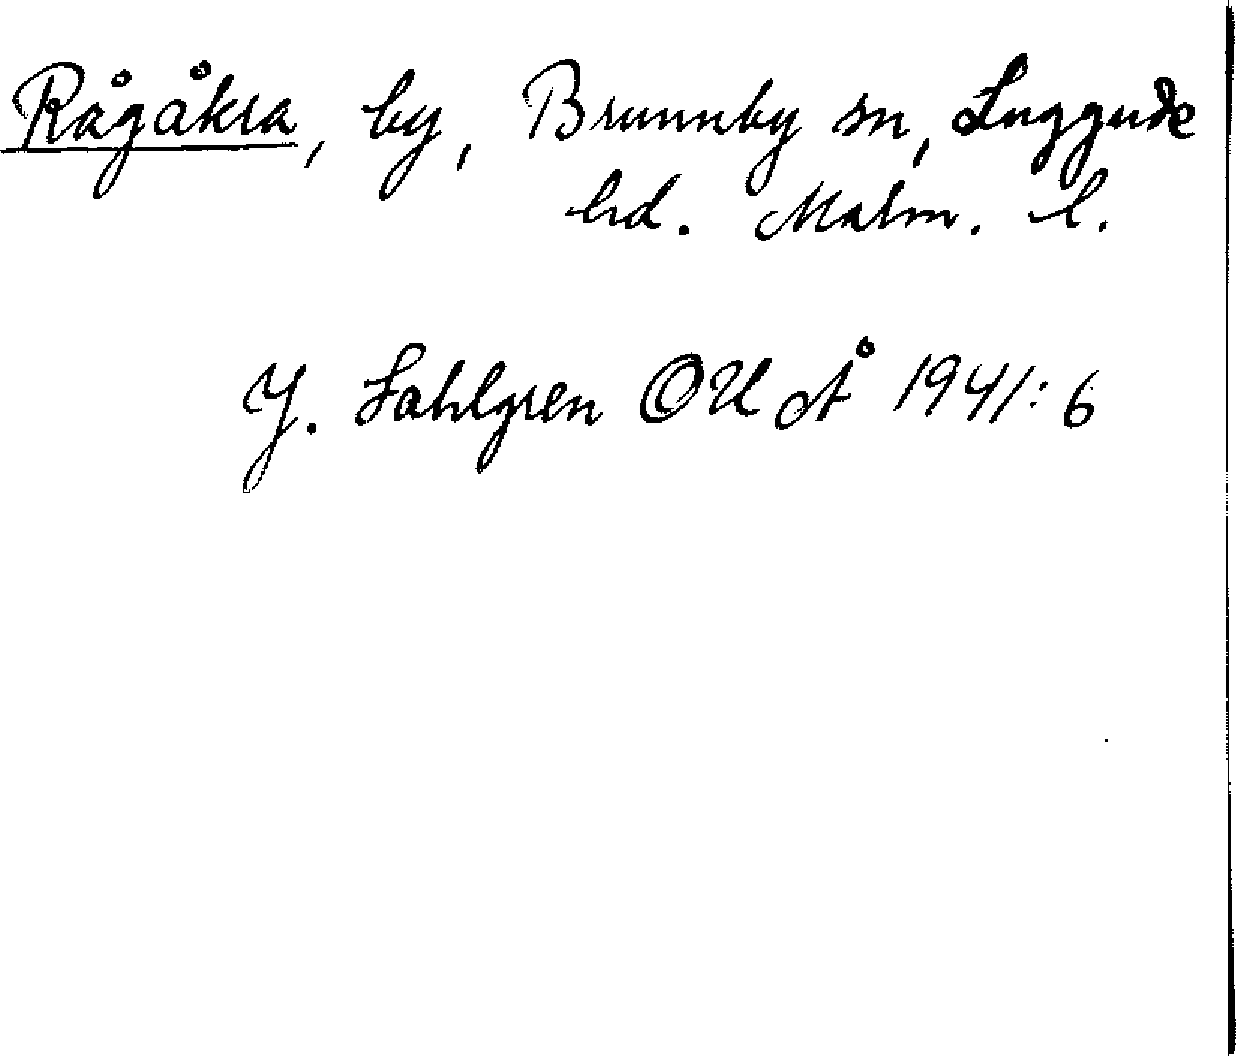 Rågåkra, by, Brunnby sn, Luggude
hd. Malm. l.
J. Sahlgren OUÅ 1941: 6